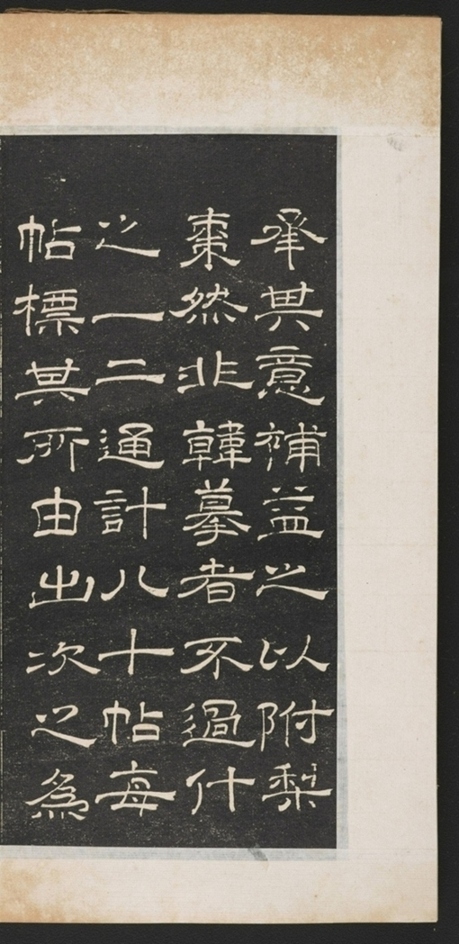 承其意補益之以附梨
棗然非韓摹者不過什
之一二通計八十帖每
帖標其所由出次之為